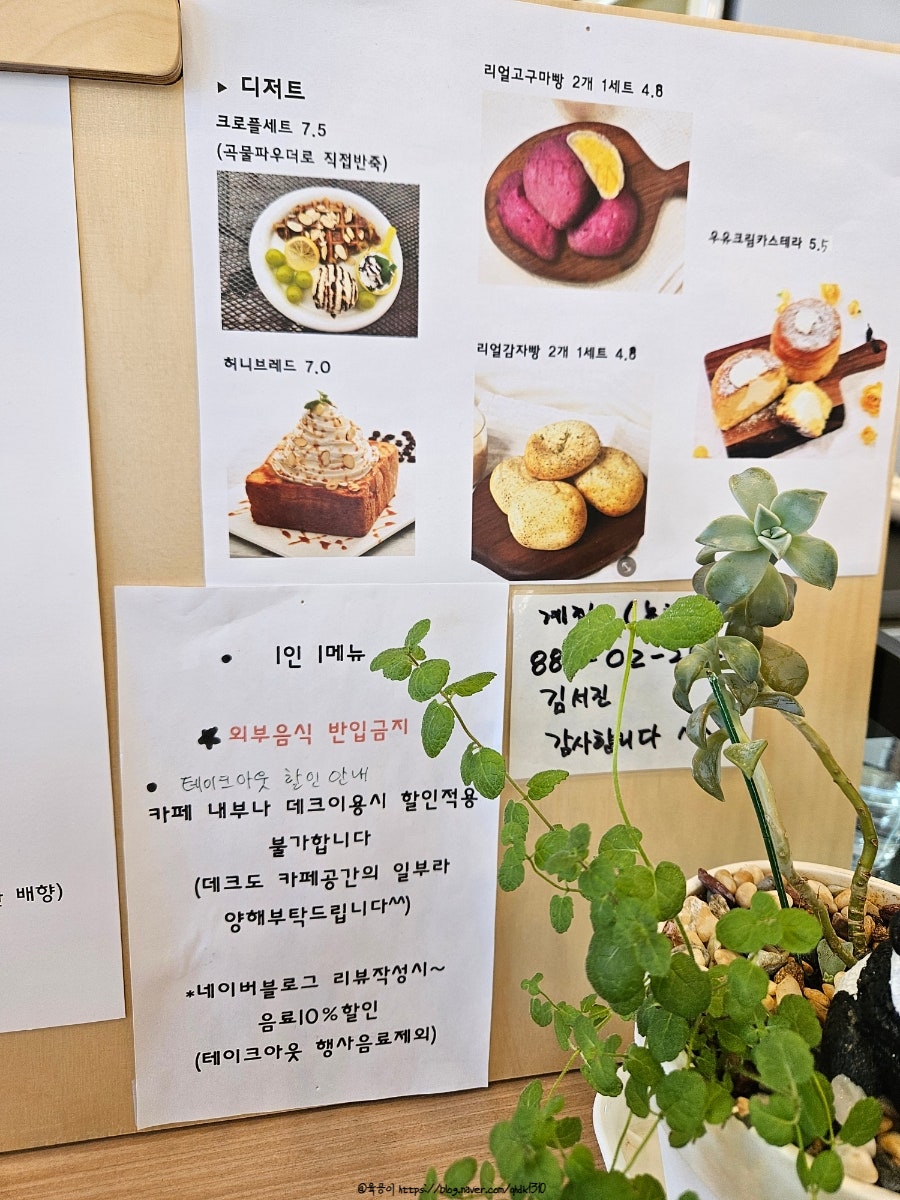 ▶ 디저트
크로플세트 7.5
(곡물파우더로 직접반죽)
허니브레드 7.0
리얼고구마빵 2개 1세트 4.8
리얼감자빵 2개 1세트 4.8
우유크림카스테라 5.5
• 1인 1메뉴
★ 외부음식 반입금지
• 테이크아웃 할인 안내
카페 내부나 데크이용시 할인적용
불가합니다
(데크도 카페공간의 일부라
양해부탁드립니다^^)
*네이버블로그 리뷰작성시~
음료10%할인
(테이크아웃 행사음료제외)
김서진
감사합니다
배향)
https://blog.naver.com/qhdk1310